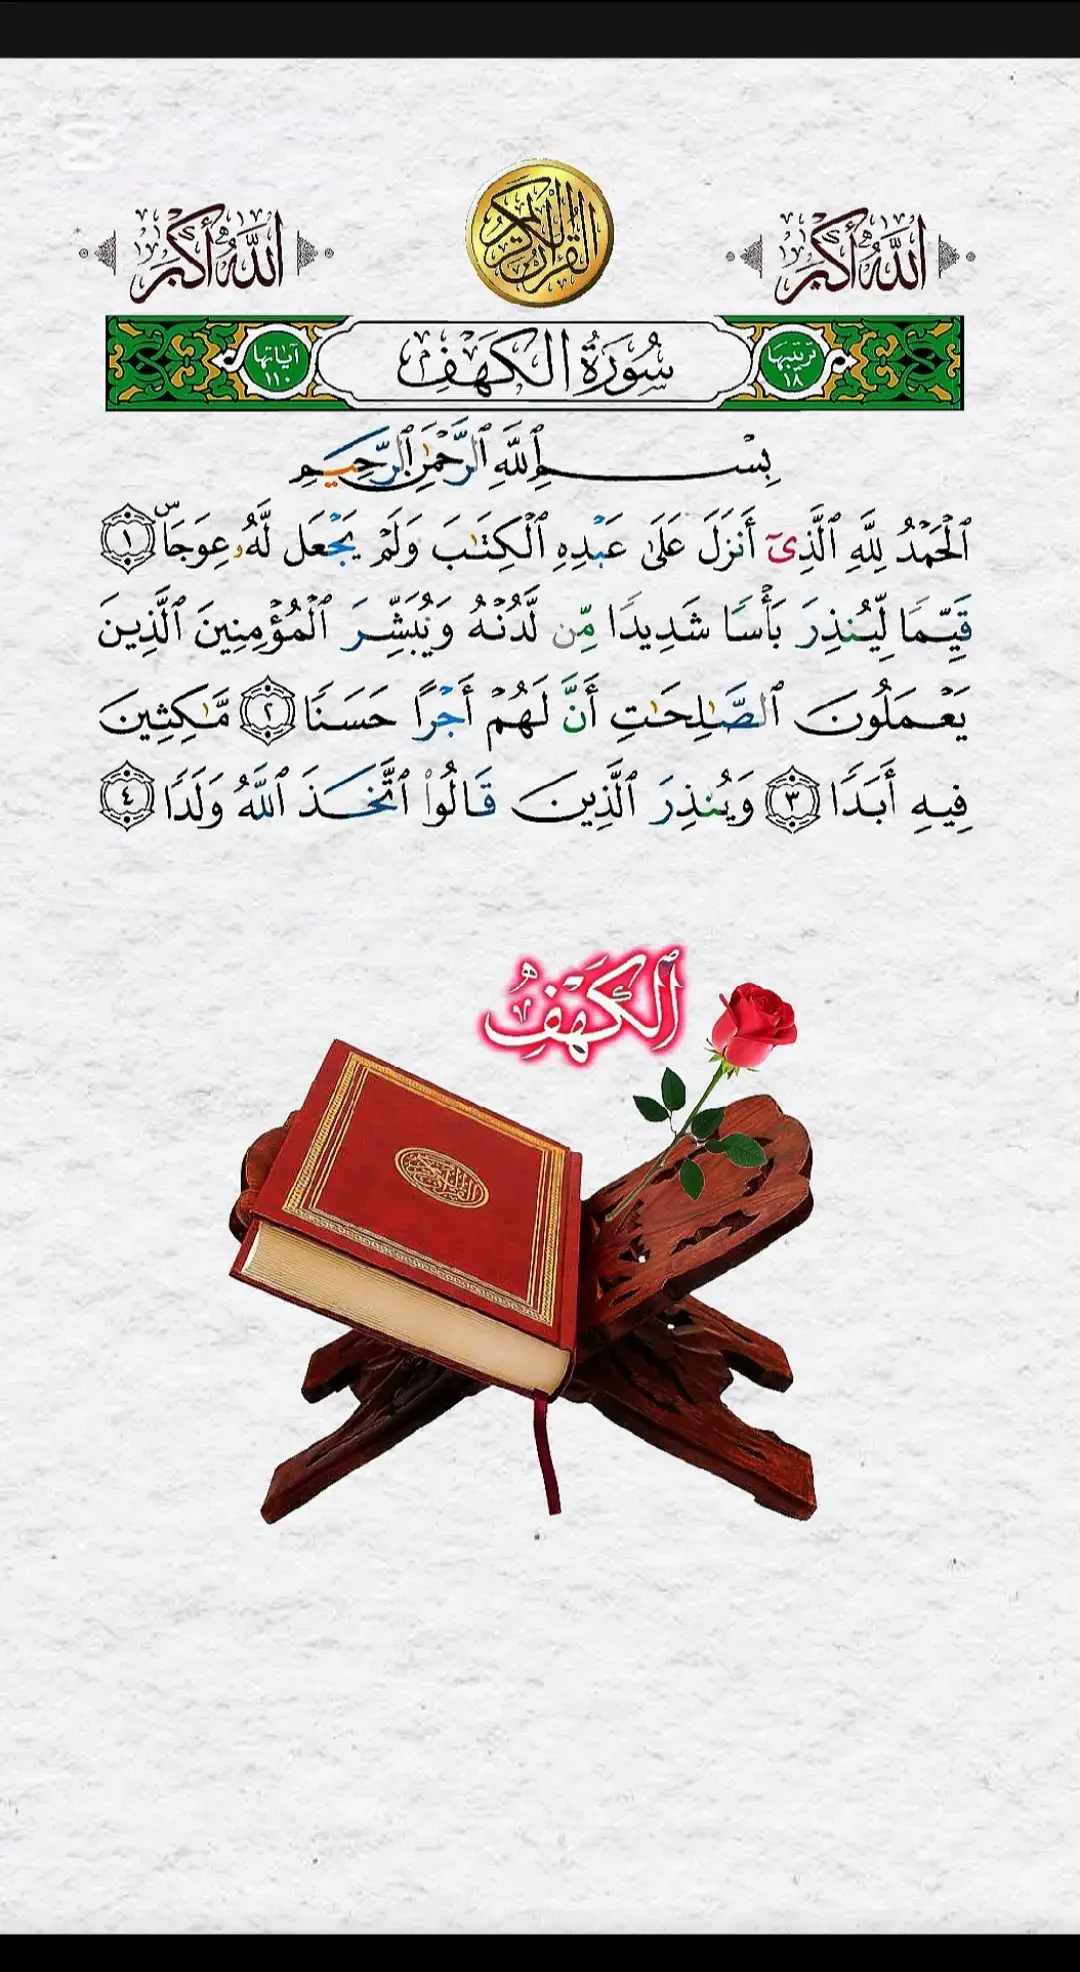 ٱللَّهُ أَكْبَر
القرآن الكريم
ٱللَّهُ أَكْبَر
ترتيبها ١٨
سُورَةُ الكَهْفِ
آياتها ١١٠
بِسْمِ ٱللَّهِ ٱلرَّحْمَٰنِ ٱلرَّحِيمِ
ٱلْحَمْدُ لِلَّهِ ٱلَّذِىٓ أَنزَلَ عَلَىٰ عَبْدِهِ ٱلْكِتَٰبَ وَلَمْ يَجْعَل لَّهُۥ عِوَجَاۜ ١
قَيِّمًا لِّيُنذِرَ بَأْسًا شَدِيدًا مِّن لَّدُنْهُ وَيُبَشِّرَ ٱلْمُؤْمِنِينَ ٱلَّذِينَ
يَعْمَلُونَ ٱلصَّٰلِحَٰتِ أَنَّ لَهُمْ أَجْرًا حَسَنًا ٢ مَّٰكِثِينَ
فِيهِ أَبَدًا ٣ وَيُنذِرَ ٱلَّذِينَ قَالُوا۟ ٱتَّخَذَ ٱللَّهُ وَلَدًا ٤
ٱلْكَهْفِ
القرآن الكريم